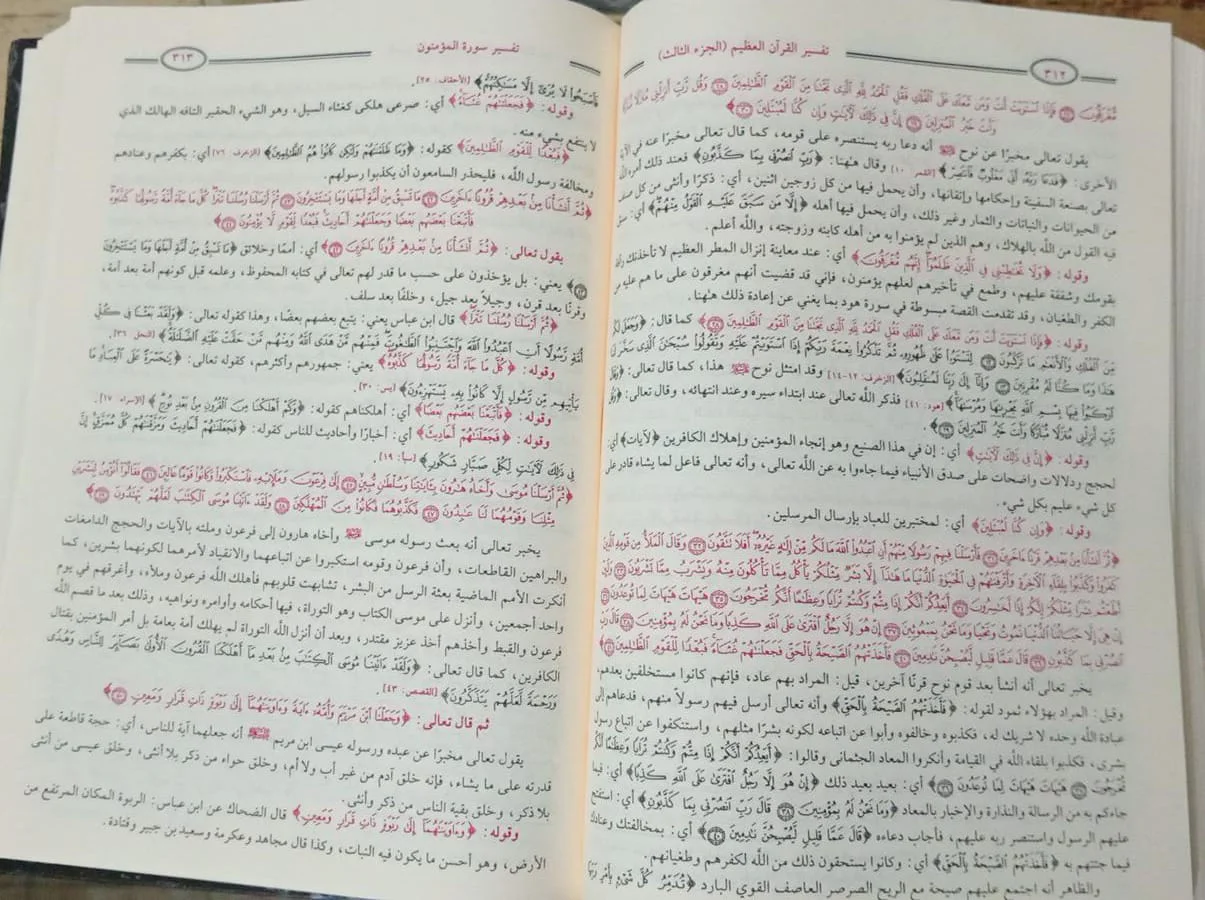 تفسير القرآن العظيم (الجزء الثالث)
٣١٢
مُّغْرَقُونَ ﴿٢٧﴾ فَإِذَا ٱسْتَوَيْتَ أَنتَ وَمَن مَّعَكَ عَلَى ٱلْفُلْكِ فَقُلِ ٱلْحَمْدُ لِلَّهِ ٱلَّذِى نَجَّىٰنَا مِنَ ٱلْقَوْمِ ٱلظَّٰلِمِينَ ﴿٢٨﴾ وَقُل رَّبِّ أَنزِلْنِى مُنزَلًا مُّبَارَكًا
وَأَنتَ خَيْرُ ٱلْمُنزِلِينَ ﴿٢٩﴾ إِنَّ فِى ذَٰلِكَ لَءَايَٰتٍ وَإِن كُنَّا لَمُبْتَلِينَ ﴿٣٠﴾
يقول تعالى مخبرًا عن نوح ﷺ أنه دعا ربه يستنصره على قومه، كما قال تعالى مخبرًا عنه في الآية
الأخرى: ﴿فَدَعَا رَبَّهُۥٓ أَنِّى مَغْلُوبٌ فَٱنتَصِرْ﴾ [القمر: ١٠] وقال هٰهنا: ﴿رَبِّ ٱنصُرْنِى بِمَا كَذَّبُونِ﴾ فعند ذلك أمره الله
تعالى بصنعة السفينة وإحكامها وإتقانها، وأن يحمل فيها من كل زوجين اثنين، أي: ذكرًا وأنثى من كل صنف
من الحيوانات والنباتات والثمار وغير ذلك، وأن يحمل فيها أهله ﴿إِلَّا مَن سَبَقَ عَلَيْهِ ٱلْقَوْلُ مِنْهُمْ﴾ أي: سبق
فيه القول من الله بالهلاك، وهم الذين لم يؤمنوا به من أهله كابنه وزوجته، والله أعلم.
وقوله: ﴿وَلَا تُخَٰطِبْنِى فِى ٱلَّذِينَ ظَلَمُوٓا۟ إِنَّهُم مُّغْرَقُونَ﴾ أي: عند معاينة إنزال المطر العظيم لا تأخذنك رأفة
بقومك وشفقة عليهم، وطمع في تأخيرهم لعلهم يؤمنون، فإني قد قضيت أنهم مغرقون على ما هم عليه من
الكفر والطغيان، وقد تقدمت القصة مبسوطة في سورة هود بما يغني عن إعادة ذلك هٰهنا.
وقوله: ﴿فَإِذَا ٱسْتَوَيْتَ أَنتَ وَمَن مَّعَكَ عَلَى ٱلْفُلْكِ فَقُلِ ٱلْحَمْدُ لِلَّهِ ٱلَّذِى نَجَّىٰنَا مِنَ ٱلْقَوْمِ ٱلظَّٰلِمِينَ ﴿٢٨﴾﴾ كما قال: ﴿وَجَعَلَ لَكُم
مِّنَ ٱلْفُلْكِ وَٱلْأَنْعَٰمِ مَا تَرْكَبُونَ ﴿١٢﴾ لِتَسْتَوُۥا۟ عَلَىٰ ظُهُورِهِۦ ثُمَّ تَذْكُرُوا۟ نِعْمَةَ رَبِّكُمْ إِذَا ٱسْتَوَيْتُمْ عَلَيْهِ وَتَقُولُوا۟ سُبْحَٰنَ ٱلَّذِى سَخَّرَ لَنَا
هَٰذَا وَمَا كُنَّا لَهُۥ مُقْرِنِينَ ﴿١٣﴾ وَإِنَّآ إِلَىٰ رَبِّنَا لَمُنقَلِبُونَ﴾ [الزخرف: ١٢-١٤] وقد امتثل نوح ﷺ هذا، كما قال تعالى: ﴿وَقَالَ
ٱرْكَبُوا۟ فِيهَا بِسْمِ ٱللَّهِ مَجْر۪ىٰهَا وَمُرْسَىٰهَآ﴾ [هود: ٤١] فذكر الله تعالى عند ابتداء سيره وعند انتهائه، وقال تعالى: ﴿وَقُل
رَّبِّ أَنزِلْنِى مُنزَلًا مُّبَارَكًا وَأَنتَ خَيْرُ ٱلْمُنزِلِينَ ﴿٢٩﴾﴾.
وقوله: ﴿إِنَّ فِى ذَٰلِكَ لَءَايَٰتٍ﴾ أي: إن في هذا الصنيع وهو إنجاء المؤمنين وإهلاك الكافرين ﴿لآيات﴾ أي
لحجج ودلالات واضحات على صدق الأنبياء فيما جاءوا به عن الله تعالى، وأنه تعالى فاعل لما يشاء قادر على
كل شيء عليم بكل شيء.
وقوله: ﴿وَإِن كُنَّا لَمُبْتَلِينَ﴾ أي: لمختبرين للعباد بإرسال المرسلين.
﴿ثُمَّ أَنشَأْنَا مِنۢ بَعْدِهِمْ قَرْنًا ءَاخَرِينَ ﴿٣١﴾ فَأَرْسَلْنَا فِيهِمْ رَسُولًا مِّنْهُمْ أَنِ ٱعْبُدُوا۟ ٱللَّهَ مَا لَكُم مِّنْ إِلَٰهٍ غَيْرُهُۥٓ أَفَلَا تَتَّقُونَ ﴿٣٢﴾ وَقَالَ ٱلْمَلَأُ مِن قَوْمِهِ ٱلَّذِينَ
كَفَرُوا۟ وَكَذَّبُوا۟ بِلِقَآءِ ٱلْءَاخِرَةِ وَأَتْرَفْنَٰهُمْ فِى ٱلْحَيَوٰةِ ٱلدُّنْيَا مَا هَٰذَآ إِلَّا بَشَرٌ مِّثْلُكُمْ يَأْكُلُ مِمَّا تَأْكُلُونَ مِنْهُ وَيَشْرَبُ مِمَّا تَشْرَبُونَ ﴿٣٣﴾ وَلَئِنْ
أَطَعْتُم بَشَرًا مِّثْلَكُمْ إِنَّكُمْ إِذًا لَّخَٰسِرُونَ ﴿٣٤﴾ أَيَعِدُكُمْ أَنَّكُمْ إِذَا مِتُّمْ وَكُنتُمْ تُرَابًا وَعِظَٰمًا أَنَّكُم مُّخْرَجُونَ ﴿٣٥﴾ هَيْهَاتَ هَيْهَاتَ لِمَا تُوعَدُونَ ﴿٣٦﴾
إِنْ هِىَ إِلَّا حَيَاتُنَا ٱلدُّنْيَا نَمُوتُ وَنَحْيَا وَمَا نَحْنُ بِمَبْعُوثِينَ ﴿٣٧﴾ إِنْ هُوَ إِلَّا رَجُلٌ ٱفْتَرَىٰ عَلَى ٱللَّهِ كَذِبًا وَمَا نَحْنُ لَهُۥ بِمُؤْمِنِينَ ﴿٣٨﴾ قَالَ رَبِّ
ٱنصُرْنِى بِمَا كَذَّبُونِ ﴿٣٩﴾ قَالَ عَمَّا قَلِيلٍ لَّيُصْبِحُنَّ نَٰدِمِينَ ﴿٤٠﴾ فَأَخَذَتْهُمُ ٱلصَّيْحَةُ بِٱلْحَقِّ فَجَعَلْنَٰهُمْ غُثَآءً فَبُعْدًا لِّلْقَوْمِ ٱلظَّٰلِمِينَ ﴿٤١﴾﴾
يخبر تعالى أنه أنشأ بعد قوم نوح قرنًا آخرين، قيل: المراد بهم عاد، فإنهم كانوا مستخلفين بعدهم،
وقيل: المراد بهؤلاء ثمود لقوله: ﴿فَأَخَذَتْهُمُ ٱلصَّيْحَةُ بِٱلْحَقِّ﴾ وأنه تعالى أرسل فيهم رسولاً منهم، فدعاهم إلى
عبادة الله وحده لا شريك له، فكذبوه وخالفوه وأبوا عن اتباعه لكونه بشرًا مثلهم، واستنكفوا عن اتباع رسول
بشرى، فكذبوا بلقاء الله في القيامة وأنكروا المعاد الجثماني وقالوا: ﴿أَيَعِدُكُمْ أَنَّكُمْ إِذَا مِتُّمْ وَكُنتُمْ تُرَابًا وَعِظَٰمًا أَنَّكُم
مُّخْرَجُونَ ﴿٣٥﴾ هَيْهَاتَ هَيْهَاتَ لِمَا تُوعَدُونَ ﴿٣٦﴾﴾ أي: بعيد بعيد ذلك ﴿إِنْ هُوَ إِلَّا رَجُلٌ ٱفْتَرَىٰ عَلَى ٱللَّهِ كَذِبًا﴾ أي: فيما
جاءكم به من الرسالة والنذارة والإخبار بالمعاد ﴿وَمَا نَحْنُ لَهُۥ بِمُؤْمِنِينَ ﴿٣٨﴾ قَالَ رَبِّ ٱنصُرْنِى بِمَا كَذَّبُونِ﴾ أي: استفتح
عليهم الرسول واستنصر ربه عليهم، فأجاب دعاءه ﴿قَالَ عَمَّا قَلِيلٍ لَّيُصْبِحُنَّ نَٰدِمِينَ ﴿٤٠﴾﴾ أي: بمخالفتك وعنادك
فيما جئتهم به ﴿فَأَخَذَتْهُمُ ٱلصَّيْحَةُ بِٱلْحَقِّ﴾ أي: وكانوا يستحقون ذلك من الله لكفرهم وطغيانهم.
والظاهر أنه اجتمع عليهم صيحة مع الريح الصرصر العاصف القوي البارد ﴿تُدَمِّرُ كُلَّ شَىْءٍۭ بِأَمْرِ رَبِّهَا
تفسير سورة المؤمنون
٣١٣
فَأَصْبَحُوا۟ لَا يُرَىٰٓ إِلَّا مَسَٰكِنُهُمْ﴾ [الأحقاف: ٢٥].
وقوله: ﴿فَجَعَلْنَٰهُمْ غُثَآءً﴾ أي: صرعى هلكى كغثاء السيل، وهو الشيء الحقير التافه الهالك الذي
لا ينتفع بشيء منه.
﴿فَبُعْدًا لِّلْقَوْمِ ٱلظَّٰلِمِينَ﴾ كقوله: ﴿وَمَا ظَلَمْنَٰهُمْ وَلَٰكِن كَانُوا۟ هُمُ ٱلظَّٰلِمِينَ﴾ [الزخرف: ٧٦] أي: بكفرهم وعنادهم
ومخالفة رسول الله، فليحذر السامعون أن يكذبوا رسولهم.
﴿ثُمَّ أَنشَأْنَا مِنۢ بَعْدِهِمْ قُرُونًا ءَاخَرِينَ ﴿٤٢﴾ مَا تَسْبِقُ مِنْ أُمَّةٍ أَجَلَهَا وَمَا يَسْتَـْٔخِرُونَ ﴿٤٣﴾ ثُمَّ أَرْسَلْنَا رُسُلَنَا تَتْرَا كُلَّ مَا جَآءَ أُمَّةً رَّسُولُهَا كَذَّبُوهُ
فَأَتْبَعْنَا بَعْضَهُم بَعْضًا وَجَعَلْنَٰهُمْ أَحَادِيثَ فَبُعْدًا لِّقَوْمٍ لَّا يُؤْمِنُونَ ﴿٤٤﴾﴾
يقول تعالى: ﴿ثُمَّ أَنشَأْنَا مِنۢ بَعْدِهِمْ قُرُونًا ءَاخَرِينَ ﴿٤٢﴾﴾ أي: أممًا وخلائق ﴿مَا تَسْبِقُ مِنْ أُمَّةٍ أَجَلَهَا وَمَا يَسْتَـْٔخِرُونَ
﴿٤٣﴾﴾ يعني: بل يؤخذون على حسب ما قدر لهم تعالى في كتابه المحفوظ، وعلمه قبل كونهم أمة بعد أمة،
وقرنًا بعد قرن، وجيلاً بعد جيل، وخلفًا بعد سلف.
﴿ثُمَّ أَرْسَلْنَا رُسُلَنَا تَتْرَا﴾ قال ابن عباس يعني: يتبع بعضهم بعضًا، وهذا كقوله تعالى: ﴿وَلَقَدْ بَعَثْنَا فِى كُلِّ
أُمَّةٍ رَّسُولًا أَنِ ٱعْبُدُوا۟ ٱللَّهَ وَٱجْتَنِبُوا۟ ٱلطَّٰغُوتَ فَمِنْهُم مَّنْ هَدَى ٱللَّهُ وَمِنْهُم مَّنْ حَقَّتْ عَلَيْهِ ٱلضَّلَٰلَةُ﴾ [النحل: ٣٦].
وقوله: ﴿كُلَّ مَا جَآءَ أُمَّةً رَّسُولُهَا كَذَّبُوهُ﴾ يعني: جمهورهم وأكثرهم، كقوله تعالى: ﴿يَٰحَسْرَةً عَلَى ٱلْعِبَادِ مَا
يَأْتِيهِم مِّن رَّسُولٍ إِلَّا كَانُوا۟ بِهِۦ يَسْتَهْزِءُونَ﴾ [يس: ٣٠].
وقوله: ﴿فَأَتْبَعْنَا بَعْضَهُم بَعْضًا﴾ أي: أهلكناهم كقوله: ﴿وَكَمْ أَهْلَكْنَا مِنَ ٱلْقُرُونِ مِنۢ بَعْدِ نُوحٍ﴾ [الإسراء: ١٧].
وقوله: ﴿فَجَعَلْنَٰهُمْ أَحَادِيثَ﴾ أي: أخبارًا وأحاديث للناس كقوله: ﴿فَجَعَلْنَٰهُمْ أَحَادِيثَ وَمَزَّقْنَٰهُمْ كُلَّ مُمَزَّقٍ إِنَّ
فِى ذَٰلِكَ لَءَايَٰتٍ لِّكُلِّ صَبَّارٍ شَكُورٍ﴾ [سبأ: ١٩].
﴿ثُمَّ أَرْسَلْنَا مُوسَىٰ وَأَخَاهُ هَٰرُونَ بِـَٔايَٰتِنَا وَسُلْطَٰنٍ مُّبِينٍ ﴿٤٥﴾ إِلَىٰ فِرْعَوْنَ وَمَلَإِي۟هِۦ فَٱسْتَكْبَرُوا۟ وَكَانُوا۟ قَوْمًا عَالِينَ ﴿٤٦﴾ فَقَالُوٓا۟ أَنُؤْمِنُ لِبَشَرَيْنِ
مِثْلِنَا وَقَوْمُهُمَا لَنَا عَٰبِدُونَ ﴿٤٧﴾ فَكَذَّبُوهُمَا فَكَانُوا۟ مِنَ ٱلْمُهْلَكِينَ ﴿٤٨﴾ وَلَقَدْ ءَاتَيْنَا مُوسَى ٱلْكِتَٰبَ لَعَلَّهُمْ يَهْتَدُونَ ﴿٤٩﴾﴾
يخبر تعالى أنه بعث رسوله موسى ﷺ وأخاه هارون إلى فرعون وملئه بالآيات والحجج الدامغات
والبراهين القاطعات، وأن فرعون وقومه استكبروا عن اتباعهما والانقياد لأمرهما لكونهما بشرين، كما
أنكرت الأمم الماضية بعثة الرسل من البشر، تشابهت قلوبهم فأهلك الله فرعون وملأه، وأغرقهم في يوم
واحد أجمعين، وأنزل على موسى الكتاب وهو التوراة، فيها أحكامه وأوامره ونواهيه، وذلك بعد ما قصم الله
فرعون والقبط وأخذهم أخذ عزيز مقتدر، وبعد أن أنزل الله التوراة لم يهلك أمة بعامة بل أمر المؤمنين بقتال
الكافرين، كما قال تعالى: ﴿وَلَقَدْ ءَاتَيْنَا مُوسَى ٱلْكِتَٰبَ مِنۢ بَعْدِ مَآ أَهْلَكْنَا ٱلْقُرُونَ ٱلْأُولَىٰ بَصَآئِرَ لِلنَّاسِ وَهُدًى
وَرَحْمَةً لَّعَلَّهُمْ يَتَذَكَّرُونَ﴾ [القصص: ٤٣].
ثم قال تعالى: ﴿وَجَعَلْنَا ٱبْنَ مَرْيَمَ وَأُمَّهُۥٓ ءَايَةً وَءَاوَيْنَٰهُمَآ إِلَىٰ رَبْوَةٍ ذَاتِ قَرَارٍ وَمَعِينٍ ﴿٥٠﴾﴾
يقول تعالى مخبرًا عن عبده ورسوله عيسى ابن مريم ﷺ أنه جعلهما آية للناس، أي: حجة قاطعة على
قدرته على ما يشاء، فإنه خلق آدم من غير أب ولا أم، وخلق حواء من ذكر بلا أنثى، وخلق عيسى من أنثى
بلا ذكر، وخلق بقية الناس من ذكر وأنثى.
وقوله: ﴿وَءَاوَيْنَٰهُمَآ إِلَىٰ رَبْوَةٍ ذَاتِ قَرَارٍ وَمَعِينٍ﴾ قال الضحاك عن ابن عباس: الربوة المكان المرتفع من
الأرض، وهو أحسن ما يكون فيه النبات، وكذا قال مجاهد وعكرمة وسعيد بن جبير وقتادة.